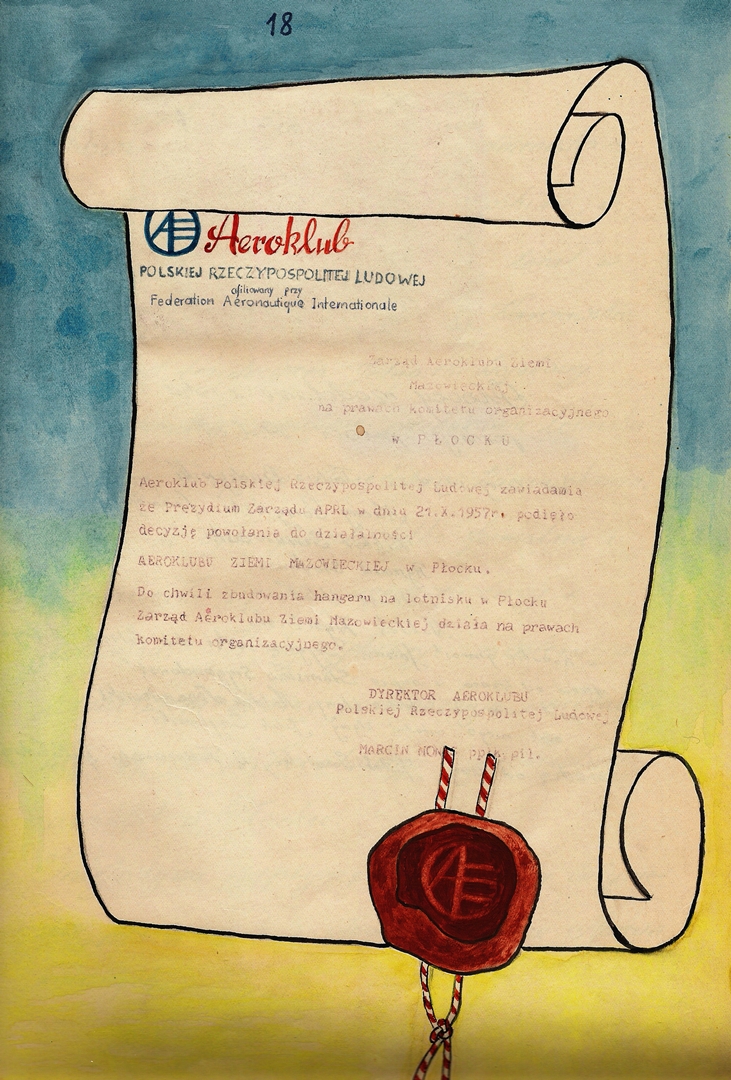 18
Æ Aeroklub
POLSKIEJ RZECZYPOSPOLITEJ LUDOWEJ
afiliowany przy
Federation Aéronautique Internationale
Zarząd Aeroklubu Ziemi
Mazowieckiej
na prawach komitetu organizacyjnego
w PŁOCKU
Aeroklub Polskiej Rzeczypospolitej Ludowej zawiadamia
że Prezydium Zarządu APRL w dniu 21.X.1957r. podjęło
decyzję powołania do działalności
AEROKLUBU ZIEMI MAZOWIECKIEJ w Płocku.
Do chwili zbudowania hangaru na lotnisku w Płocku
Zarząd Aeroklubu Ziemi Mazowieckiej działa na prawach
komitetu organizacyjnego.
DYREKTOR AEROKLUBU
Polskiej Rzeczypospolitej Ludowej
MARCIN ppłk pil.
Æ